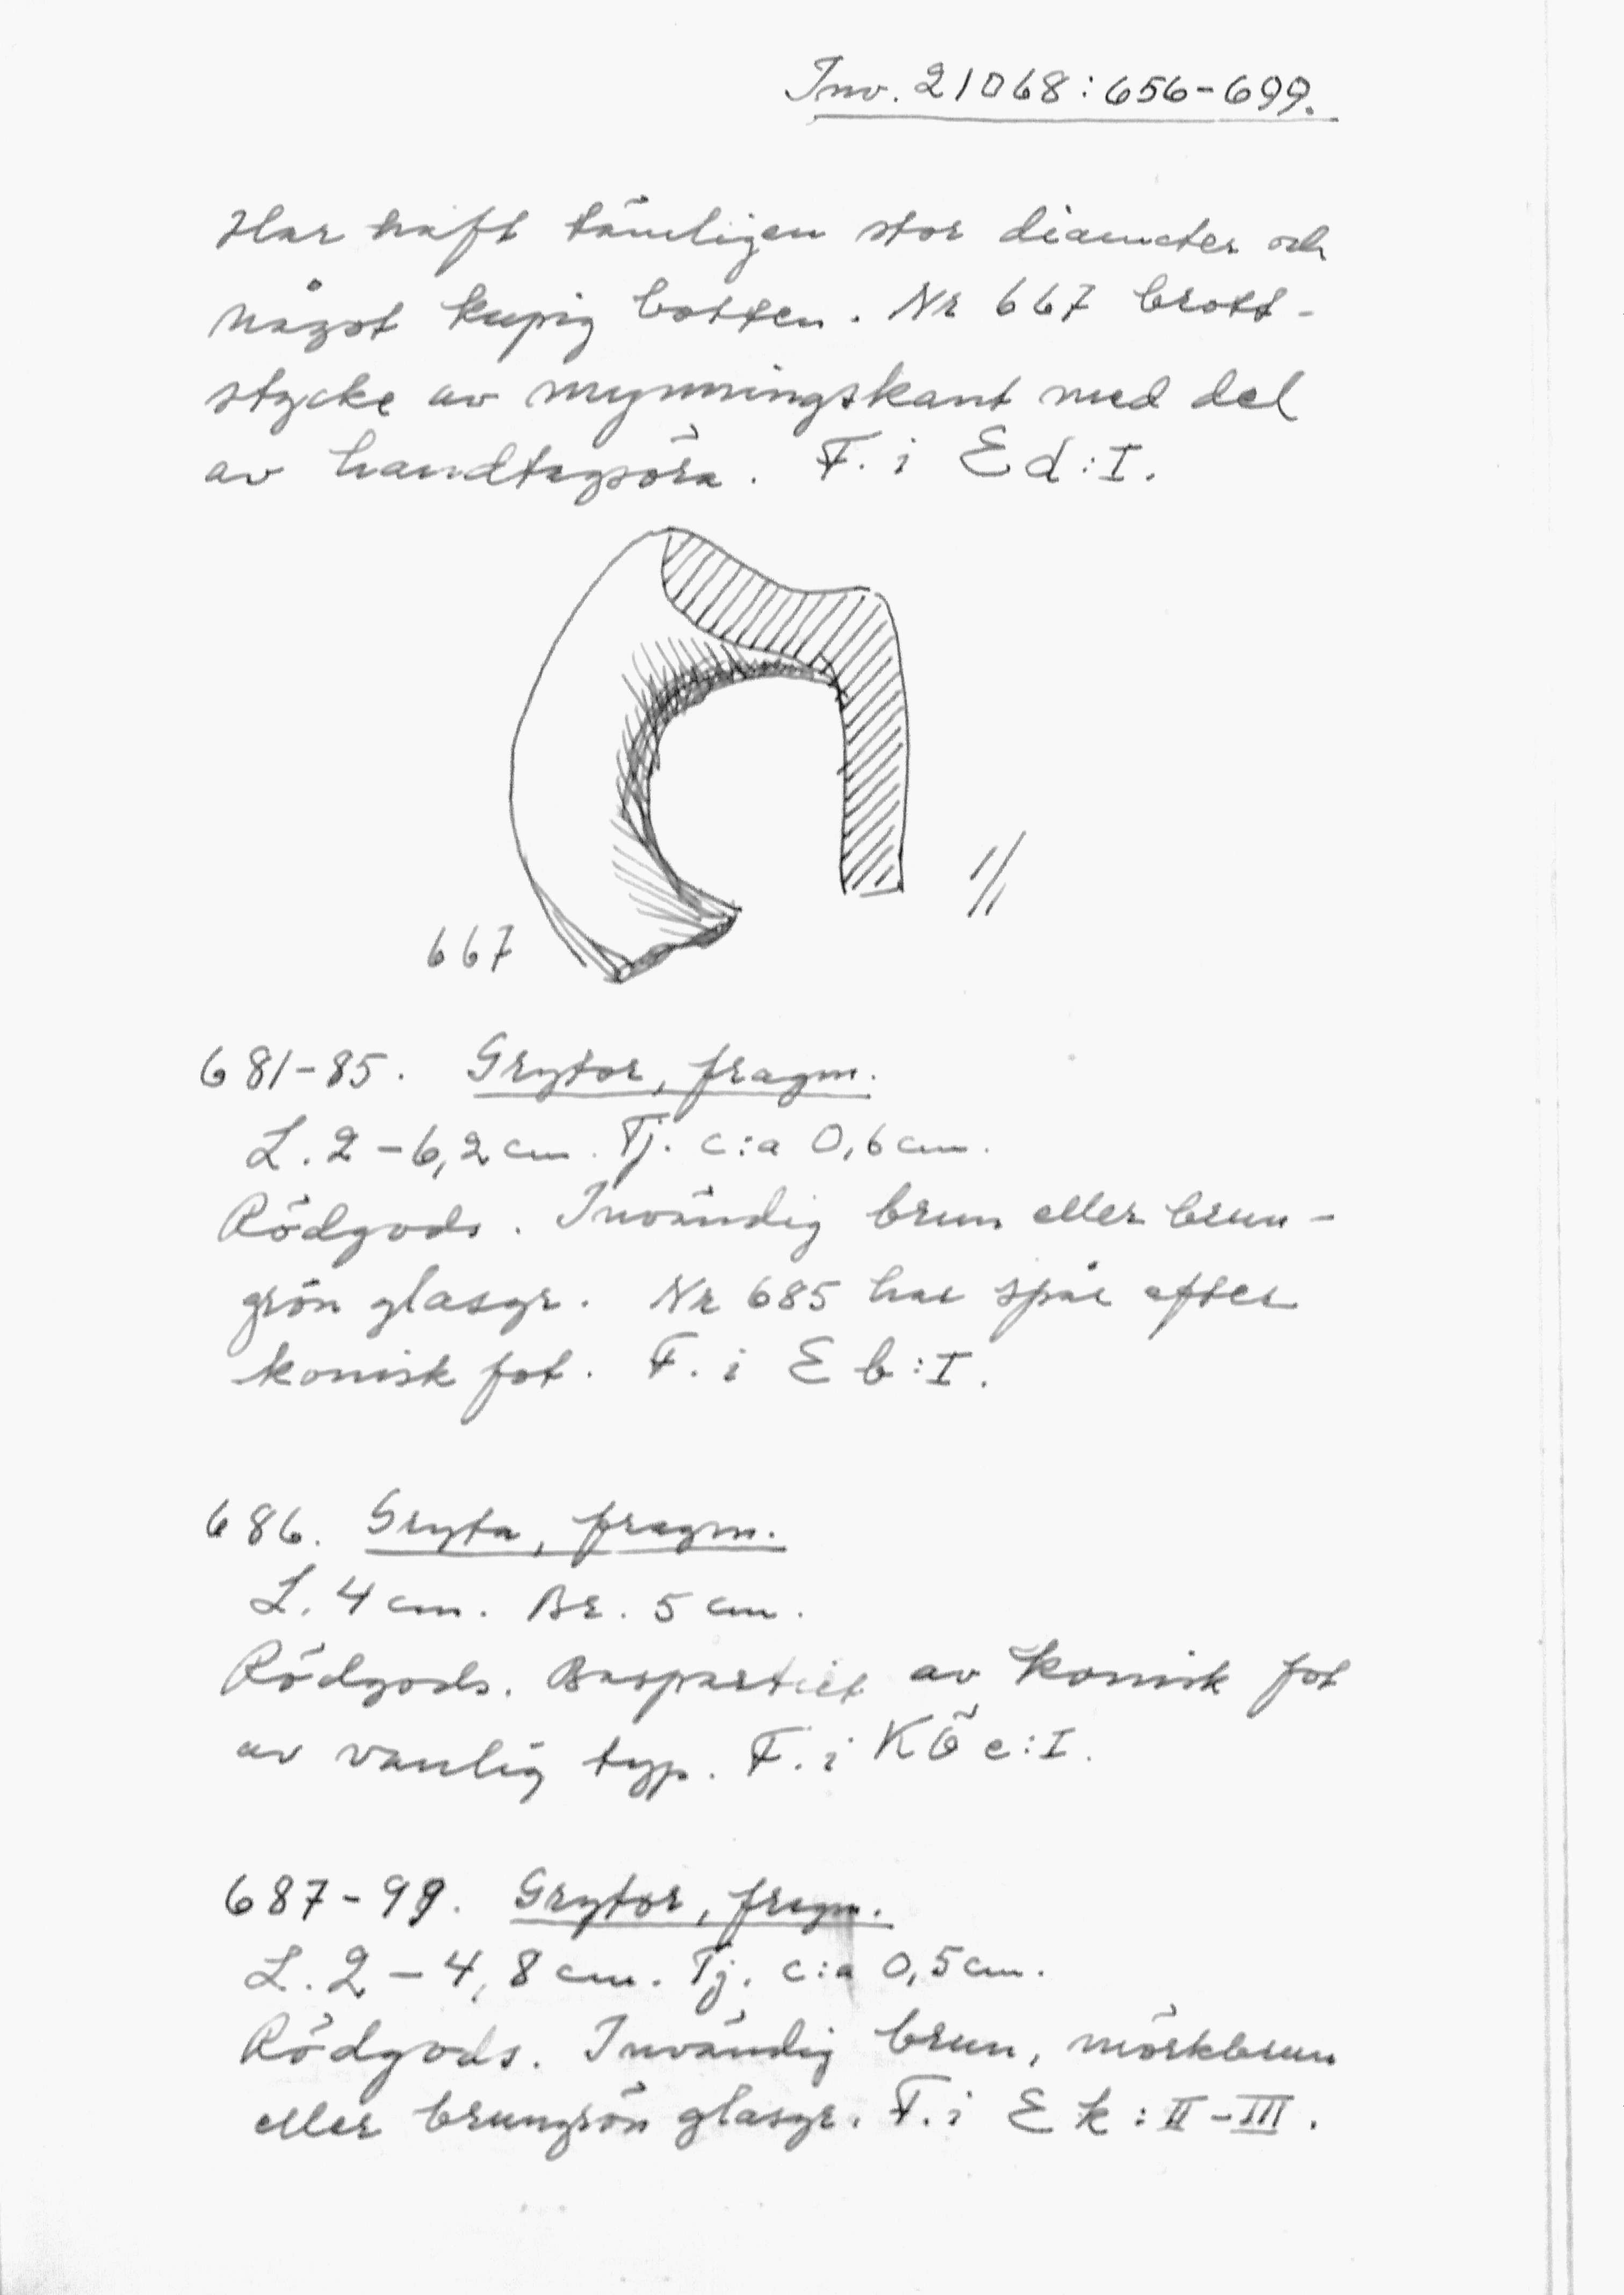 Inv. 21068:656-699.
Har haft tämligen stor diameter och
något kupig botten. Nr 667 brott-
stycke av mynningskant med del
av handtagsöra. F. i Ed:I.
1/1
667
681-85. Grytor, fragm.
L. 2-6,2 cm. Tj. c:a 0,6 cm.
Rödgods. Invändig brun eller brun-
grön glasyr. Nr 685 har spår efter
konisk fot. F. i Eb:I.
686. Gryta, fragm.
L. 4 cm. Br. 5 cm.
Rödgods. Baspartiet av konisk fot
av vanlig typ. F. i KÖe:I.
687-99. Grytor, fragm.
L. 2-4,8 cm. Tj. c:a 0,5 cm.
Rödgods. Invändig brun, mörkbrun
eller brungrön glasyr. F. i Ek:II-III.